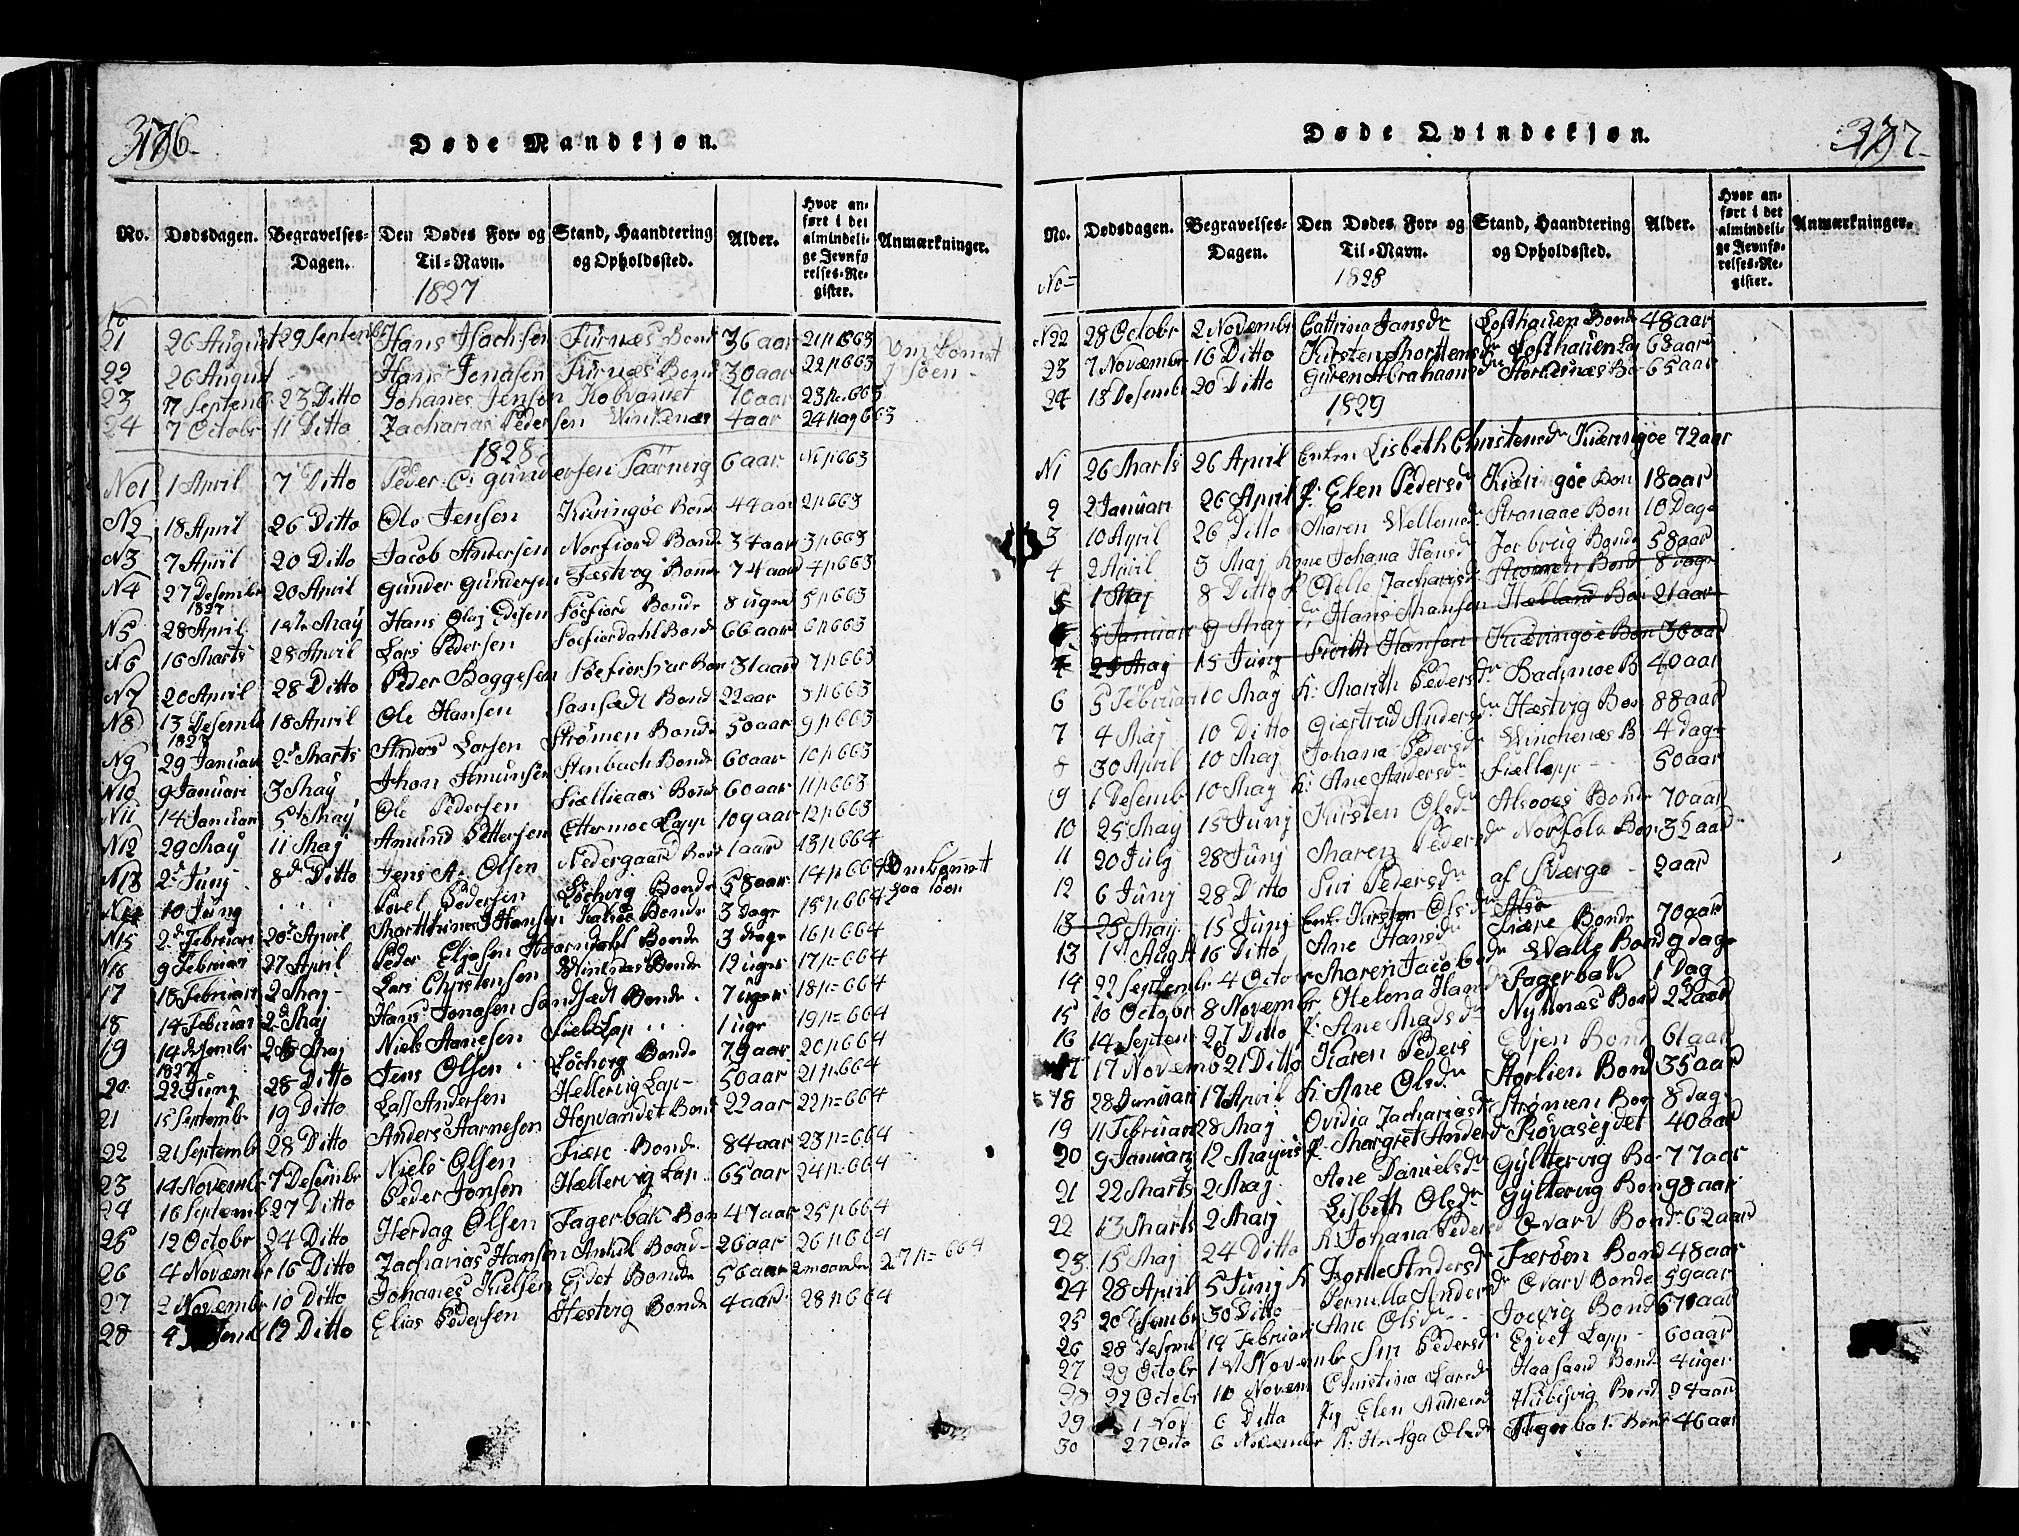 376.
Døde Mandkjøn.
No. Dødsdagen. Begravelses-Dagen. Den Dødes For- og Til-Navn. Stand, Haandtering og Opholdssted. Alder. Hvor anført i det almindelige Jevnførelses-Register. Anmærkninger.
1827
No
21 26 August 29 Septembr Hans Isachsen Furnæs Bond 36 aar 21 p 663 Omkommet
22 26 August Hans Jonasen Furnæs Bond 30 aar 22 p 663 i Søen
23 7 Septenb 23 Ditto Johanes Jensen Kobvannet 70 aar 23 p. 663
24 7 Octobr 11 Ditto Zacharias Pedersen Winkenæs 4 aar 24 pag 663
1828
No 1 1 April 7 Ditto Peder C. Gundersen 6 aar N1 p 663
N2 18 April 26 Ditto Ole Jensen Kieringøe Bond 44 aar 2 p 663
N3 7 April 20 Ditto Jacob Andersen Norfiord Bond 34 aar 3 p 663
N4 27 Desembr 1827 20 April Gunder Gundersen Fæstvog Bond 74 aar 4 p 663
N5 28 April 1ste May Hans Olaj Edisen Søefiord Bonde 8 uger 5 p 663
N6 16 Marts 28 April Lars Pedersen Soefiordahl Bond 66 aar 6 p 663
N7 20 April 28 Ditto Peder Baggesen Bon 31 aar 7 p 663
N8 13 Desemb 1827 18 April Ole Hansen Sansædt Bond 22 aar 8 p 663
N9 29 Januar 2d Marts Anders Larsen Strømen Bond 50 aar 9 p 663
N10 9 Januari 3 May Jhon Amunsen Stenbach Bond 60 aar 10 p 663
N11 14 Januar 5te May Ole Pedersen Bond 60 aar 11 p 663
N12 29 May 11 May Amund Pettersen Ettermoe Lapp 109 aar 12 p 663
N13 2d Junj 8de Ditto Jens A. Olsen Nedergaard Bond 1 aar 13 p 664
N14 10 Jung Povel Pedersen Löchvig Bonde 58 aar 14 p 664 Omkommet paa Søen
N15 2d Februari 20d April Hansen Bonde 3 dage 15 p 664
N16 9 Februar 27 April Peder Eliasen Bonde 3 dage 16 p 664
17 18 Februari 2 May Lars Christensen Winknæs Bonde 12 uger 17 p 664
18 14 Februar 2d May Hans Jonasen Sandsædt Bonde 7 uger 18 p 664
19 14 desembr 1827 2d May Niels Aanesen Fiel Lap 1 ugr 19 p 664
20 22 Jung 28 Ditto Jens Olsen Löchvig Bonde 79 aar 20 p 664
21 15 Septembr 19 Ditto Lass Andersen Hellervig Lap 50 aar 21 p. 664
22 21 Septembr 28 Ditto Anders Aarnesen Hopvandet Bond 22 aar 22 p 664
23 14 Novembr 7 Desembr Niels Olsen Fiære Bonde 84 aar 23 p 664
24 16 Septemb 27 Ditto Peder Jonsen Hællervig Lap 65 aar 24 p. 664
25 12 Octobr 24 Ditto Herdag Olsen Fagerbak Bon 47 aar 25 p 664
26 4 Novembr 16 Ditto Zacharias Hansen Bond 26 aar 26 p 664
27 2 Novembr 10 Ditto Johanes Kielsen Ejdet Bonde 56 aar 2 maaneder 27 p 664
28 12 Ditto Elias Pedersen Hestvig Bonde 4 aar 28 p 664
377
Døde Qvindekjøn.
No. Dødsdagen. Begravelses-Dagen. Den Dødes For- og Til-Navn. Stand, Haandtering og Opholdssted. Alder. Hvor anført i det almindelige Jevnførelses-Register. Anmærkninger.
No 1828
N22 28 Octobr 2 Novembr Cathrina Jansdr Lofthauen Bonde 48 aar
23 7 Novembr 16 Ditto Kirsten Morttensdr Lofthauen 68 aar
24 13 Desembr 20 Ditto Guren Abrahamsdr Storkesnæs Bo 65 aar
1829
N1 26 Marts 26 April Enken Lisbeth Christensdr Kieringøe 72 aar
2 2 Januari 26 April P. Elen Pedersd Kieringøe Bon 18 aar
3 10 April 26 Ditto Maren Wellumsd Stranaae Bon 10 Dage
4 2 April 3 Maj Kone Johana Hansd Bonde 58 aar
5 1 Maj 8 Ditto Zacharisd Strømen Bond 8 dage
5 Januari 9 Maj Hans Mansen Hælland Bon 21 aar
25 Maj 15 Junj Hansen Kieringøe Bon 36 aar
6 5 Februari 10 Maj K: Marith Pedersdr Badsmoe B 40 aar
7 4 Maj 10 Ditto Giærtrud Andersdr Hæstvig Bon 88 aar
8 30 April 10 Maj Johana Pedersd Winchenæs B 4 dage
9 1 Desemb 10 Maj K: Ane Andersd Fiællapp 50 aar
10 25 Maj 15 Junj Kirsten Olsd Alsoses Bond 70 aar
11 20 Julj 28 Junj Maren Pedersdr Norfold Bon 35 aar
12 6 Junj 28 Ditto Siri Pedersdr af Sværge 2 aar
13 25 Maj 15 Junj Enk: Kirsten Olsdr Also
13 1st Augst 16 Ditto Ane Hansdr Fiære Bonde 70 aar
14 22 Septembr 4 Octobr Maren Jacobsdr Walle Bond 9 dage
15 10 Octobr 8 Novembr Helena Hansd Fagerbak 1 Dag
16 14 Septem 27 Ditto K: Ane Madsdr Nystnæs Bond 22 aar
17 17 Novemb 21 Ditto Karen Peders Evjen Bond 61 aar
18 28 Januari 17 April K: Ane Olsd Storlien Bond 35 aar
19 11 Februari 28 Maj Ovidia Zachariasdr Strømen Bon 8 dage
20 9 Januari 12 Majus P. Margret Andersd Røvasejdet 40 aar
21 22 Marts 2 Maj Ane Danielsdr Gylttervig Bo 77 aar
22 13 Marts 2 Marj Lisbeth Olsdr Gyltervig Bon 98 aar
23 15 Maj 24 Ditto K: Johana Pedersd Evarv Bonde 62 aar
24 28 April 5 Junj K Dortte Andersdr Færøen Bond 48 aar
25 20 Desembr 30 Ditto Pernilla Andersdr Evarv Bonde 59 aar
26 28 Desemb 18 Februar Ane Olsd Bond 67 aar
27 29 Octobr 18 Novembr Siri Pedersd Ejdet Lapp 60 aar
28 22 Octobr 10 Novem Christina Larsdr Haasand Bond 4 uger
29 1 Nov 6 Ditto Pig Elen Bond 24 aar
30 27 Octo 6 Novembr K: Helga Olsdr Fagerbak Bond 46 aar